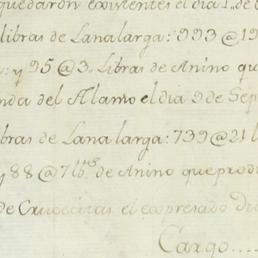 quedaron existentes el dia 1.º de
libras de Lana larga: 993 @ 19
: y 95 @ 3. Libras de Anino que
nda del Alamo el dia 9 de Sep
bras de Lana larga: 739 @ 21 l
y 88 @ 7 lbˢ de Anino que prod
de Crucecitas el expresado di
Cargo....